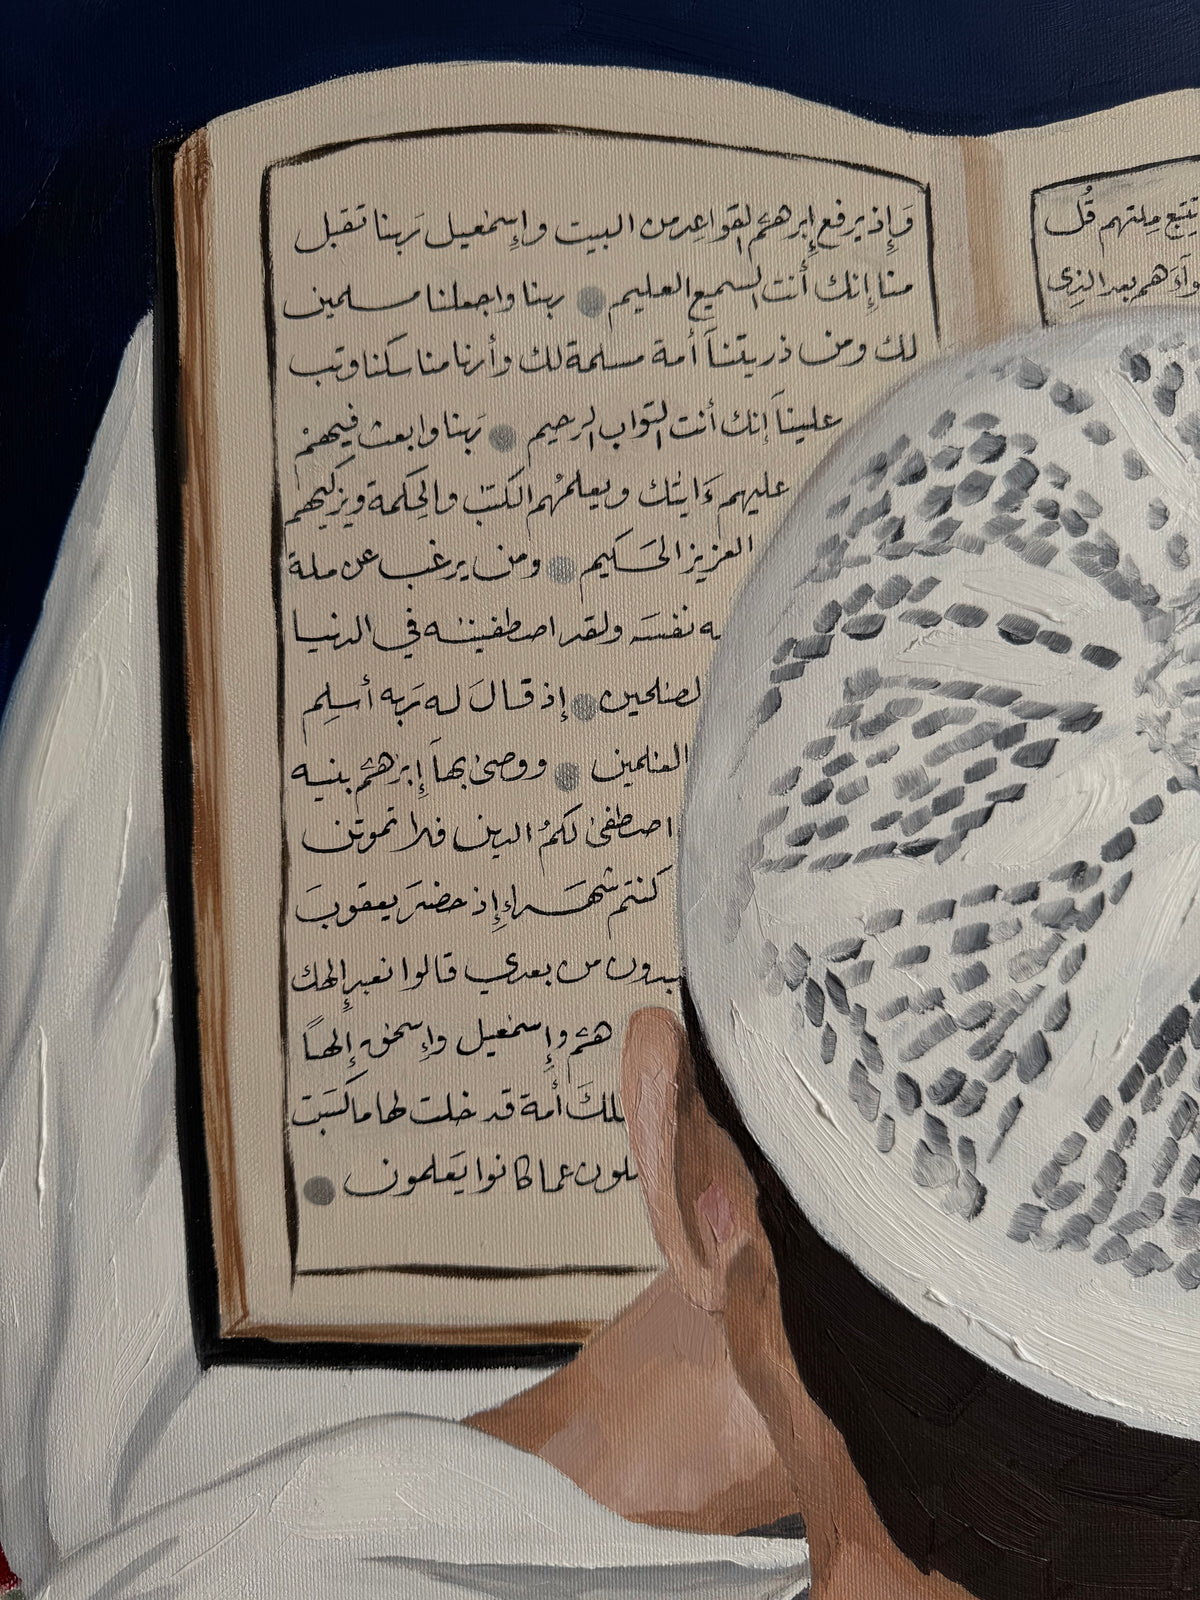 تتبع ملتهم قُل
هم بعد الذى
وَإِذ يرفع إِبرهـٔم القواعِد من البيت وإِسمٰعيل رَبنا تقبل
منا إِنك أنت السميع العليم ربنا واجعلنا مسلمين
لك ومن ذريتنآ أمة مسلمة لك وأرنا مناسكنا وتب
علينآ إنك أنت التواب الرحيم رَبنا وابعث فِيهمْ
عليهم ءَايٰتك ويعلمُهم الكتٰب والحِكمة ويزكيهم
العزيز الحَكيم ومن يرغب عن ملة
ـه نفسَه ولقد اصطفينٰه في الدنيا
لصٰلحين إذ قالَ له رَبه أسلِم
العٰلمين ووصىٰ بهآ إِبرٰهـٔم بنيه
اصطفىٰ لكمُ الدين فلا تموتن
كنتم شهَداء إِذ حضرَ يعقوبَ
ـبدون من بعدي قالوا نعبد إِلهك
هـٔم وإِسمٰعيل وإِسحٰق إِلهـاً
ـلكَ أمة قد خلت لها ما كَسَبت
ـلون عما كانوا يَعلمون